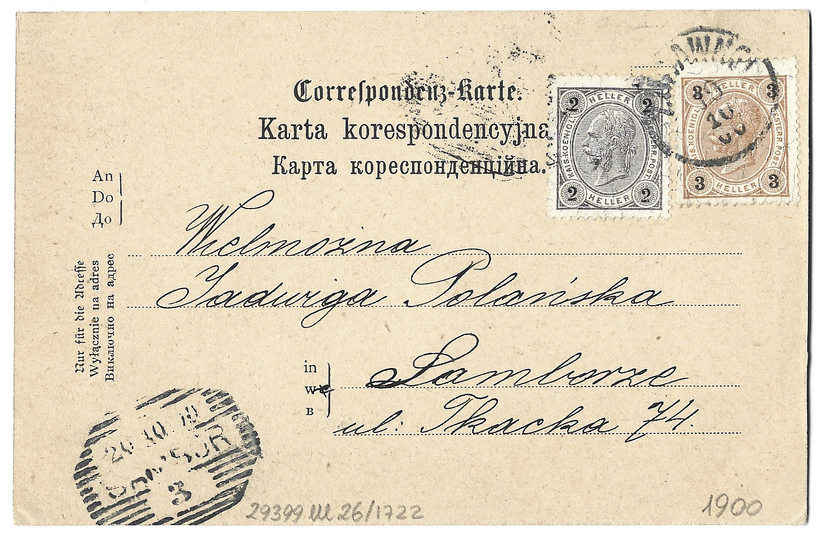 Correspondenz-Karte.
Karta korespondencyjna
Карта кореспонденційна.
2 HELLER 2
KAIS. KOENIGL. OESTERR. POST.
2 HELLER 2
3 HELLER 3
KAIS. KOENIGL. OESTERR. POST.
3 HELLER 3
10
An
Do
До
Nur für die Adresse
Wyłącznie na adres
Виключно на адрес
Wielmożna
Jadwiga Polańska
in
w
в
Samborze
ul: Tkacka 74.
SAMBOR
3
29399 III 26/1722
1900